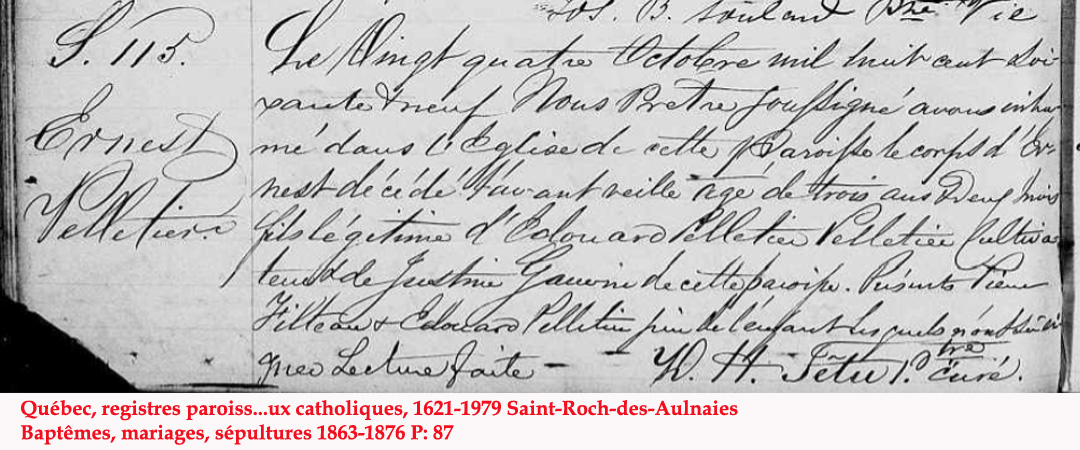 Jos. B. Soulard Ptre Vic
S. 115.
Ernest
Pelletier.
Le Vingt quatre Octobre mil huit cent soi-
xante & neuf Nous Prêtre soussigné avons inhu-
mé dans l'Eglise de cette Paroisse le corps d'Er-
nest décédé l'avant veille agé de trois ans & deux mois
fils légitime d'Edouard Pelletier Pelletier Cultiva-
teur & de Justine Gauvin de cette paroisse. Présents Pierre
Filteau & Edouard Pelletier père de l'enfant lesquels n'ont su si-
gner Lecture faite —
D. H. Têtu Ptre curé.
Québec, registres paroiss...ux catholiques, 1621-1979 Saint-Roch-des-Aulnaies
Baptêmes, mariages, sépultures 1863-1876 P: 87